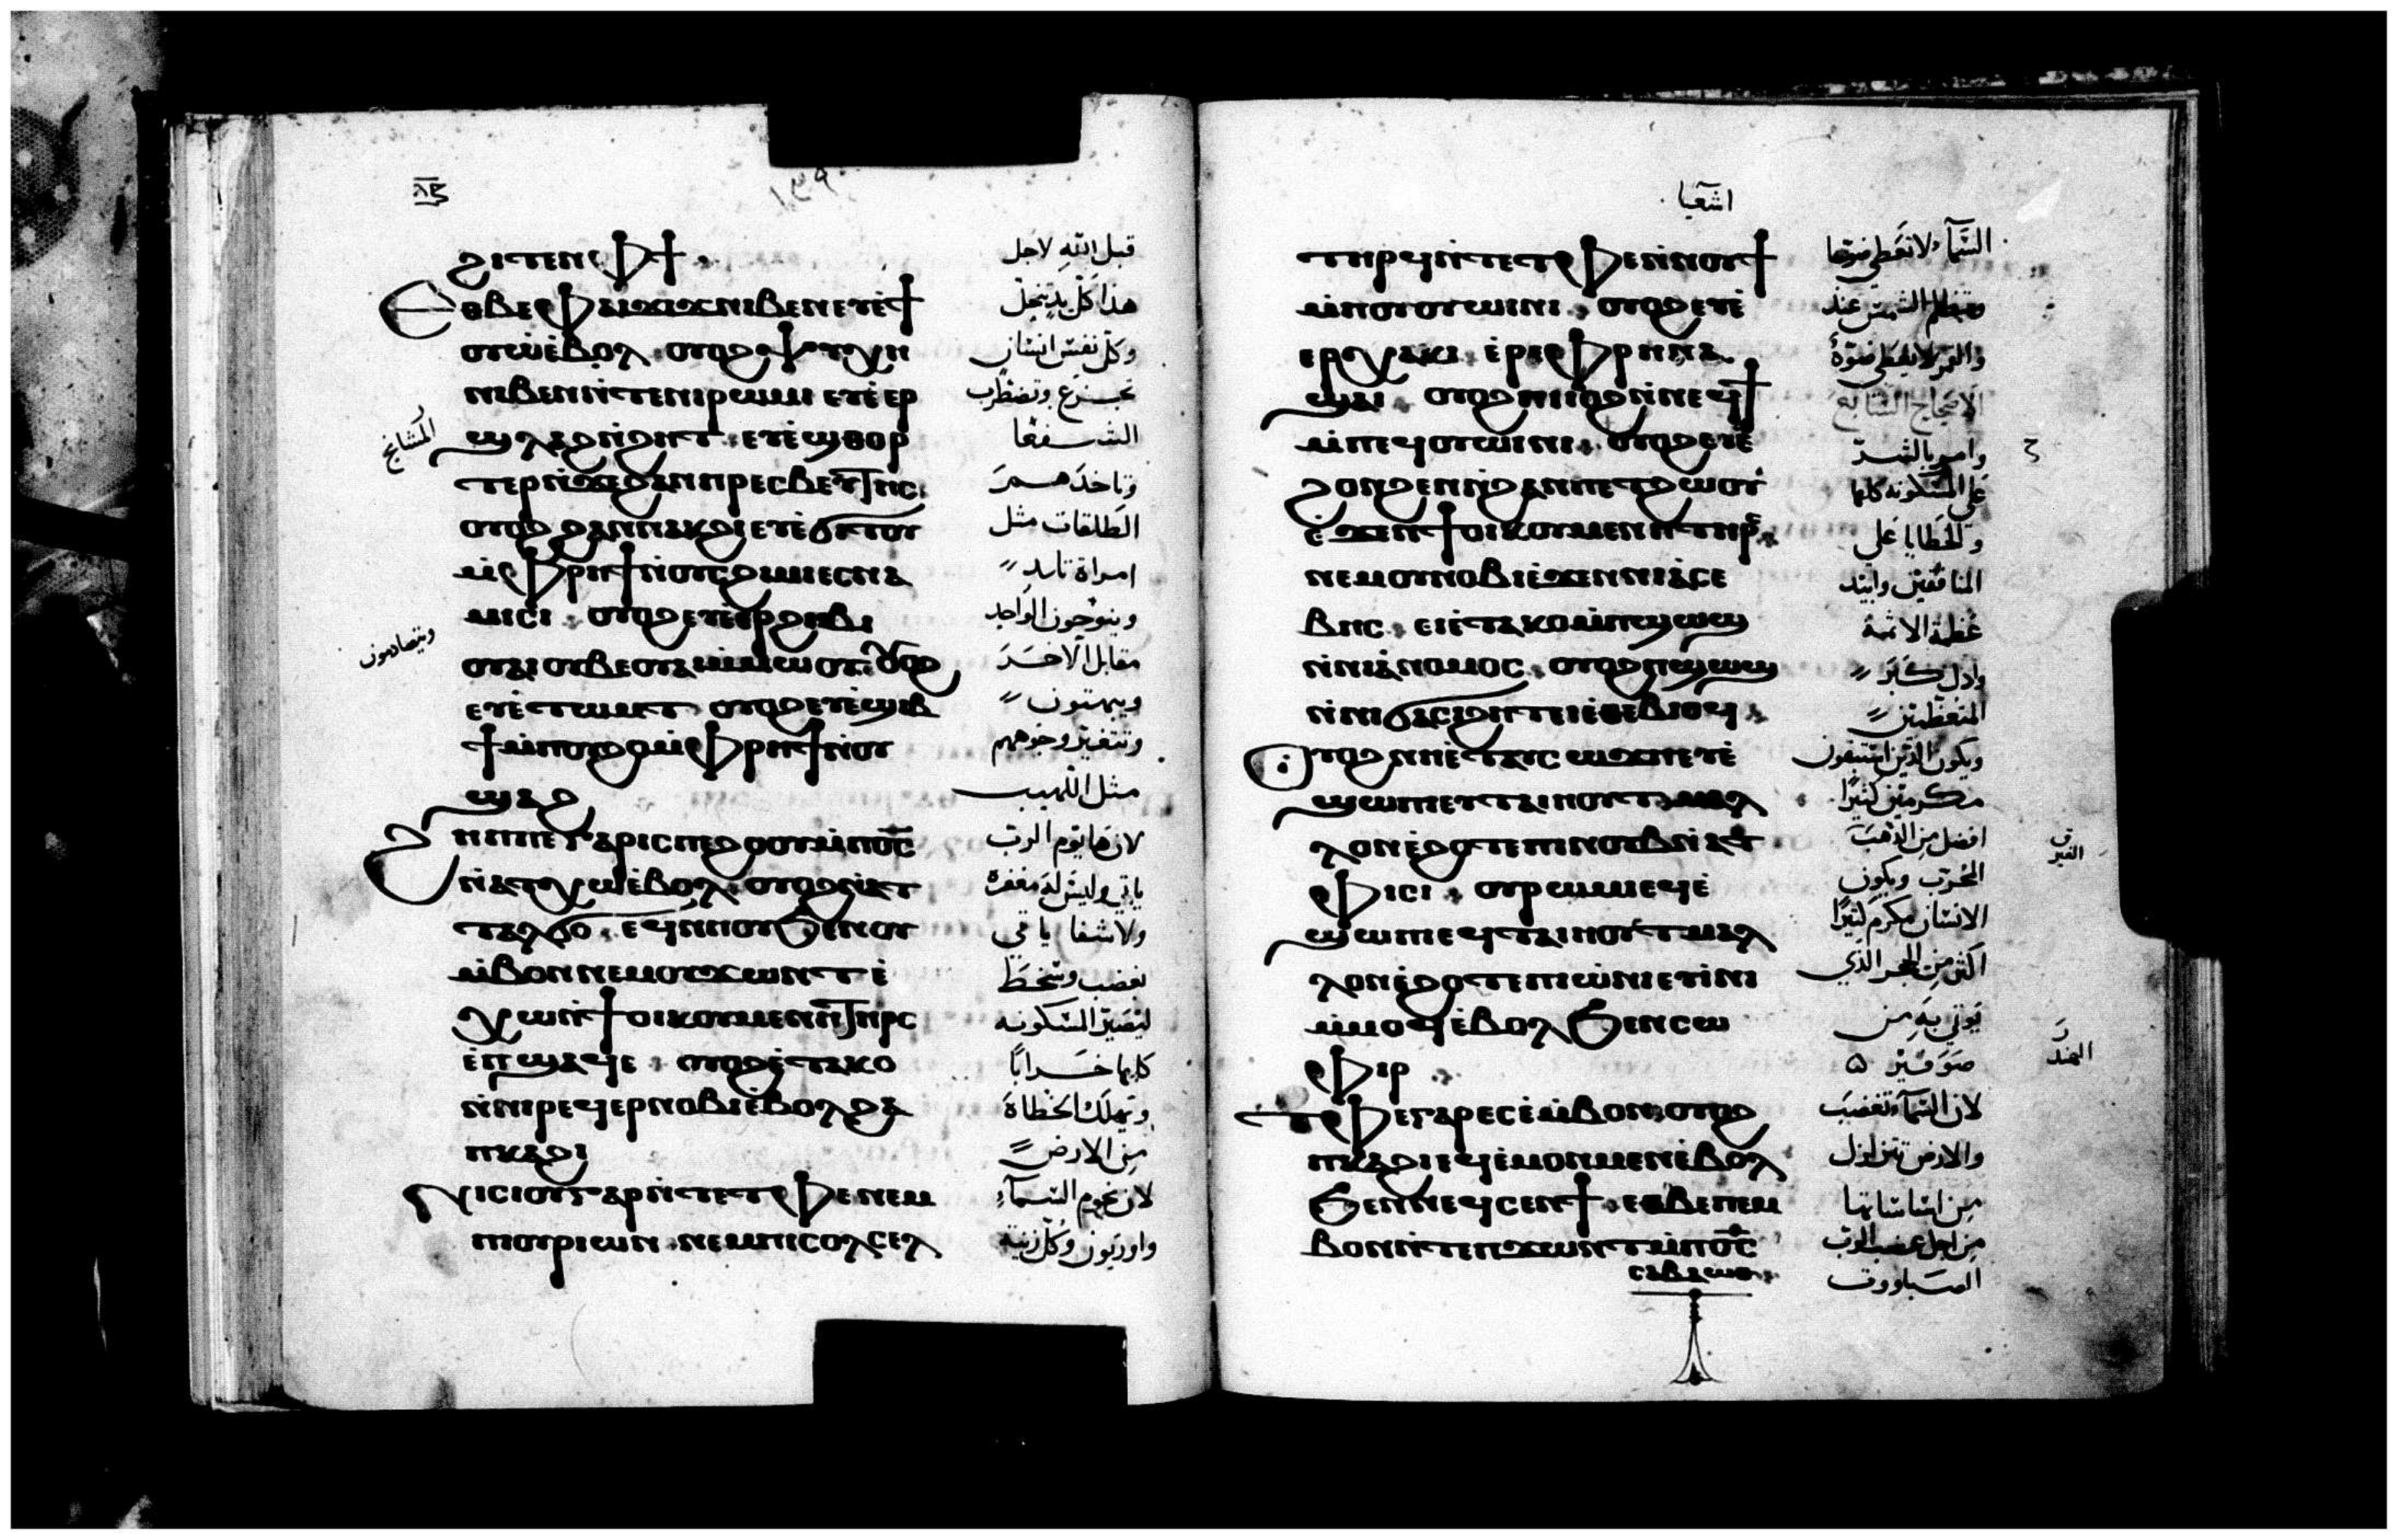 ⲗ̅ⲍ̅
ϩⲓⲧⲉⲛⲫϯ.
Ⲉⲑⲃⲉⲫⲁⲓϫⲓϫⲛⲓⲃⲉⲛⲉⲧⲉ̀ϯ
ⲟⲩⲱ̀ⲉ̀ⲃⲟⲗ. ⲟⲩⲟϩⲯⲩⲭⲏ
ⲛⲓⲃⲉⲛⲛ̀ⲧⲉⲛⲓⲣⲱⲙⲓ ⲉⲧⲉ̀ⲉⲣ
ϣⲗⲁϩⲛ̀ϩⲏⲧ. ⲉⲧⲉ̀ϣⲑⲟⲣ
ⲧⲉⲣⲛ̀ϫⲉϩⲁⲛⲡⲣⲉⲥⲃⲉⲩⲧⲏⲥ.
ⲟⲩⲟϩ ϩⲁⲛⲛⲁⲕϩⲓⲉⲧⲉ̀ϭⲓⲧⲟⲩ
ⲙ̀ⲫⲣⲏϯⲛ̀ⲟⲩⲥϩⲓⲙⲓⲉⲥⲛⲁ
ⲙⲓⲥⲓ. ⲟⲩⲟϩⲉⲧⲉ̀ⲉⲣϩⲏⲃⲓ
ⲟⲩⲁⲓⲟⲩⲃⲉⲟⲩⲁⲓⲙ̀ⲙⲱⲟⲩ. ⲟⲩⲟϩ
ⲉⲧⲉ̀ⲧⲱⲙⲧ ⲟⲩⲟϩⲉⲧⲉ̀ϣⲓⲃ
ϯⲙ̀ⲡⲟⲩϩⲟⲙ̀ⲫⲣⲏϯⲛ̀ⲟⲩ
ϣⲁϩ
Ϩⲏⲡⲡⲉⲅⲁⲣⲓⲥⲡⲉϩⲟⲟⲩⲙ̀ⲡⲟ̅ⲥ̅
ⲛ̀ⲁⲧⲭⲱⲉ̀ⲃⲟⲗ. ⲟⲩⲟϩⲛ̀ⲁⲧ
ⲧⲁⲗϭⲟ. ⲉϥⲛⲏⲟⲩϧⲉⲛⲟⲩ
ⲙ̀ⲃⲟⲛⲛⲉⲙⲟⲩϫⲱⲛⲧ ⲉ̀
ⲭⲱⲛ̀ϯⲟⲓⲕⲟⲩⲙⲉⲛⲏⲧⲏⲣⲥ
ⲉ̀ⲡϣⲁϥⲉ. ⲟⲩⲟϩⲉ̀ⲧⲁⲕⲟ
ⲛ̀ⲛⲓⲣⲉϥⲉⲣⲛⲟⲃⲓⲉ̀ⲃⲟⲗϩⲁ
ⲡⲕⲁϩⲓ
Ⲛⲓⲥⲓⲟⲩⲅⲁⲣⲛ̀ⲧⲉⲧⲫⲉⲛⲉⲙ
ⲡⲟⲩⲣⲓⲱⲛ. ⲛⲉⲙⲡⲓⲥⲟⲗⲥⲉⲗ
قبل الله لاجل
هذا كل يد تنحل
وكل نفس انسان
تجزع وتضطرب
الشفعا
المشايخ
وتاخذهم
الطلقات مثل
امراة تلد
وينوحون الواحد
ويتصادمون
مقابل الاخر
ويبهتون
وتتغير وجوههم
مثل اللهيب
لان ها يوم الرب
ياتي وليس له مغفرة
ولا شفا ياتي
بغضب وسخط
ليصير المسكونه
كلها خرابا
وتهلك الخطاة
من الارض
لان نجوم السماء
واوريون وكل زينة
اشعيا
ⲧⲏⲣϥⲛ̀ⲧⲉⲧⲫⲉⲛ̀ⲛⲟⲩϯ
ⲙ̀ⲡⲟⲩⲟⲩⲱⲓⲛⲓ. ⲟⲩⲟϩⲉⲧⲉ̀
ⲉⲣⲭⲁⲕⲓ ⲉ̀ⲣⲉⲫⲣⲏⲛⲁ
ϣⲁⲓ. ⲟⲩⲟϩⲡⲓⲓⲟϩⲛ̀ⲛⲉϥϯ
ⲙ̀ⲡⲉϥⲟⲩⲱⲓⲛⲓ. ⲟⲩⲟϩⲉⲧⲉ̀
ϩⲟⲛϩⲉⲛⲛ̀ϩⲁⲛⲡⲉⲧϩⲱⲟⲩ
ⲉ̀ϫⲉⲛϯⲟⲓⲕⲟⲩⲙⲉⲛⲏⲧⲏⲣⲥ.
ⲛⲉⲙⲟⲩⲛⲟⲃⲓⲉ̀ϫⲉⲛⲛⲓⲁ̀ⲥⲉ
ⲃⲏⲥ. ⲉⲓⲉ̀ⲧⲁⲕⲟⲙ̀ⲡϣⲱϣ
ⲛ̀ⲛⲓⲁ̀ⲛⲟⲙⲟⲥ. ⲟⲩⲟϩⲡϣⲱϣ
ⲛ̀ⲛⲓϭⲁⲥⲓϩⲏⲧⲉⲓⲉ̀ⲑⲉⲃⲓⲟϥ.
Ⲟⲩⲟϩⲛⲏⲉ̀ⲧⲁⲩⲥⲱϫⲡⲉⲧⲉ̀
ϣⲱⲡⲉⲩⲧⲁⲓⲏⲟⲩⲧⲙⲁⲗ
ⲗⲟⲛⲉ̀ϩⲟⲧⲉⲡⲓⲛⲟⲩⲃⲛ̀ⲁⲧ
ⲫⲓⲥⲓ. ⲟⲩⲣⲱⲙⲓⲉϥⲉ̀
ϣⲱⲡⲉϥⲧⲁⲓⲏⲟⲩⲧⲙⲁⲗ
ⲗⲟⲛⲉ̀ϩⲟⲧⲉⲡⲓⲱ̀ⲛⲓⲉⲧⲓⲛⲓ
ⲙ̀ⲙⲟϥⲉ̀ⲃⲟⲗϧⲉⲛⲥⲱ
ⲫⲓⲣ.
Ⲧⲫⲉⲅⲁⲣⲉⲥⲉ̀ⲙ̀ⲃⲟⲛ. ⲟⲩⲟϩ
ⲡⲕⲁϩⲓⲉϥⲉ̀ⲙⲟⲛⲙⲉⲛⲉ̀ⲃⲟⲗ
ϧⲉⲛⲛⲉϥⲥⲉⲛϯ. ⲉⲑⲃⲉⲡⲉⲙ
ⲃⲟⲛⲛ̀ⲧⲉⲡϫⲱⲛⲧⲙ̀ⲡⲟ̅ⲥ̅
ⲥⲁⲃⲁⲱⲑ.
السماء لا تعطي ضوها
وتظلم الشمس عند
والقمر لا يعطي ضوة
وامر بالشر
على المسكونه كلها
والخطايا على
المنافقين وابيد
عظمة الاثمة
واذل كبر
المتعظمين
ويكون الذين
مكرمين كثيرا
افضل من الذهب
المجرب ويكون
الانسان مكرم كثيرا
اكثر من الحجر الذي
يوتي به من
صوفير
الهند
لان السماء تغضب
والارض تتزلزل
من اساساتها
من اجل غضب الرب
الصباووت